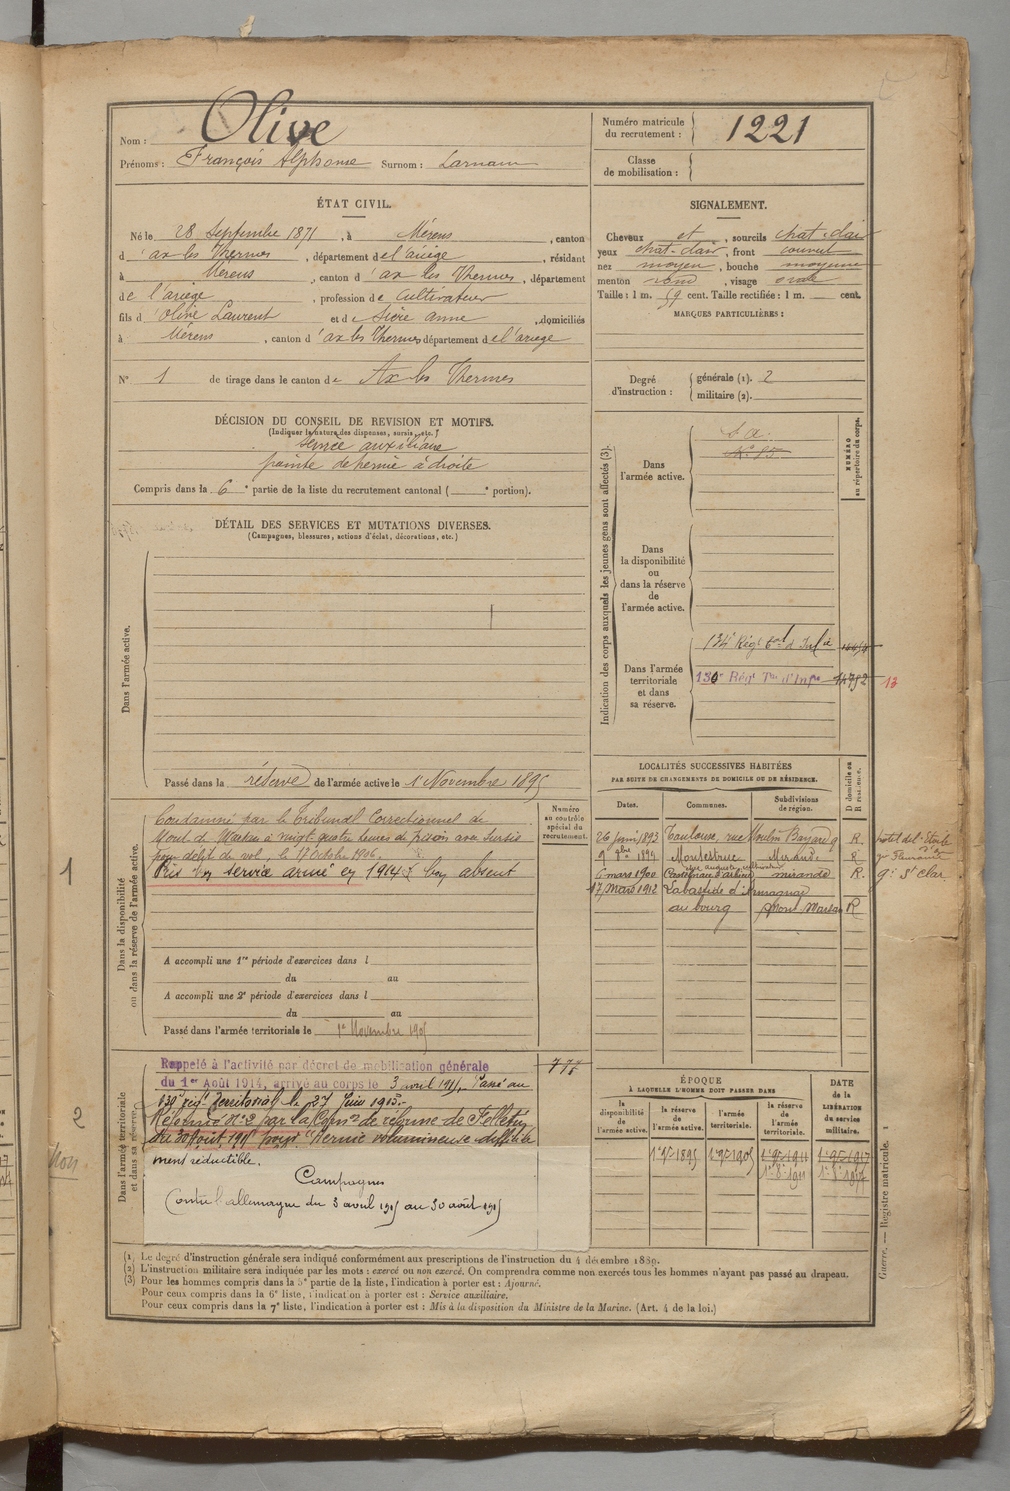 Nom : Olive
Prénoms : François Alphonse Surnom : Larnaun
Numéro matricule
du recrutement : 1221
Classe
de mobilisation :
ÉTAT CIVIL.
Né le 28 Septembre 1871, à Mérens, canton
d'ax les Thermes, département de l'ariège, résidant
à Mérens, canton d'ax les Thermes, département
de l'ariège, profession de Cultivateur
fils d'Olive Laurent et de Sicre anne, domiciliés
à Mérens, canton d'ax les Thermes département de l'ariege
N° 1 de tirage dans le canton de Ax les Thermes
DÉCISION DU CONSEIL DE REVISION ET MOTIFS.
(Indiquer la nature des dispenses, sursis, etc.)
service auxiliaire
pointe de hernie à droite
Compris dans la 6e partie de la liste du recrutement cantonal ( e portion).
SIGNALEMENT.
Cheveux et, sourcils chat-clair
yeux chat-clair, front couvert
nez moyen, bouche moyenne
menton rond, visage ovale
Taille : 1 m. 59 cent. Taille rectifiée : 1 m. cent.
MARQUES PARTICULIÈRES :
Degré
d'instruction :
générale (1). 2
militaire (2).
DÉTAIL DES SERVICES ET MUTATIONS DIVERSES.
(Campagnes, blessures, actions d'éclat, décorations, etc.)
Dans l'armée active.
Passé dans la réserve de l'armée active le 1 Novembre 1895
Indication des corps auxquels les jeunes gens sont affectés (3).
NUMÉRO
au répertoire du corps.
Dans
l'armée active.
S. a.
Dans
la disponibilité
ou
dans la réserve
de
l'armée active.
Dans l'armée
territoriale
et dans
sa réserve.
134e Régt Tal d'Infie
130e Régt Tal d'Infie 14752 13
Dans la disponibilité
ou dans la réserve de l'armée active.
Numéro
au contrôle
spécial du
recrutement.
Condamné par le Tribunal Correctionnel de
Mont de Marsan à vingt-quatre heures de prison avec sursis
pour délit de vol, le 17 octobre 1906.
Pris bon service armé en 1914 bon absent
A accompli une 1re période d'exercices dans l
du au
A accompli une 2e période d'exercices dans l
du au
Passé dans l'armée territoriale le 1er Novembre 1905
LOCALITÉS SUCCESSIVES HABITÉES
PAR SUITE DE CHANGEMENTS DE DOMICILE OU DE RÉSIDENCE.
Dates. Communes. Subdivisions
de région. D domicile ou
R résidence.
26 juin 1893 Toulouse, rue Moulin Bayard 9 R. hotel de l'Etoile
9 9bre 1894 Montestruc Mirande R
6 mars 1900 Castelnau d'arbieu mirande R. qr St Clar
17 Mars 1912 Labastide d'Armagnac
au bourg Mont Marsan R
Dans l'armée territoriale
et dans sa réserve.
Rappelé à l'activité par décret de mobilisation générale
du 1er Août 1914, arrivé au corps le 3 avril 1915, Passé au
130e régt Territorial le 27 Juin 1915.
Réformé n°2 par la Comon de réforme de Felletin
du 30 Août 1915 pour "Hernie volumineuse difficile
ment réductible.
Campagnes
Contre l'allemagne du 3 avril 1915 au 30 août 1915
ÉPOQUE
À LAQUELLE L'HOMME DOIT PASSER DANS
DATE
DE LA
LIBÉRATION
du service
militaire.
la
disponibilité
de
l'armée active.
la réserve
de
l'armée active.
l'armée
territoriale.
la réserve
de
l'armée
territoriale.
1er 9bre 1895 1er 9bre 1905 1er 9bre 1911 1er 9bre 1917
1er 8bre 1911 1er 8bre 1917
1
2
non.
(1) Le degré d'instruction générale sera indiqué conformément aux prescriptions de l'instruction du 4 décembre 1889.
(2) L'instruction militaire sera indiquée par les mots : exercé ou non exercé. On comprendra comme non exercés tous les hommes n'ayant pas passé au drapeau.
(3) Pour les hommes compris dans la 5e partie de la liste, l'indication à porter est : Ajourné.
Pour ceux compris dans la 6e liste, l'indication à porter est : Service auxiliaire.
Pour ceux compris dans la 7e liste, l'indication à porter est : Mis à la disposition du Ministre de la Marine. (Art. 4 de la loi.)
Guerre. — Registre matricule. 1